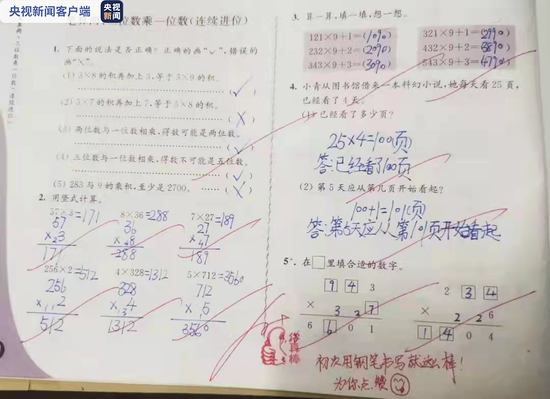 央视新闻
客户端
位数乘一位数(连续进位)
1. 下面的说法是否正确?正确的画“√”,错误的画“×”。
(1) 3×8的积再加上3,等于3×9的积。
(√)
(2) 5×7的积再加上7,等于5×8的积。
(×)
(3) 两位数与一位数相乘,得数可能是两位数。
(√)
(4) 三位数与一位数相乘,得数不可能是五位数。
(√)
(5) 283与9的乘积,至少是2700。
(×)
2. 用竖式计算。
57×3=171 8×36=288 7×27=189
57 36 27
171 288 189
256×2=512 4×328=1312 5×712=3560
256 328 712
512 1312 3560
3. 算一算,填一填,想一想。
121×9+1=(1090) 321×9+1=(2890)
232×9+2=(2090) 432×9+2=(3890)
343×9+3=(3090) 543×9+3=(4890)
4. 小青从图书馆借来一本科幻小说,她每天看25页,已经看了4天。
(1) 已经看了多少页?
25×4=100(页)
答:已经看了100页
(2) 第5天应从第几页开始看起?
100+1=101(页)
答:第5天应从第101页开始看起
5* 在□里填合适的数字。
943 234
6601 1404
你真棒
初次用钢笔书写就这么棒!
为你点赞